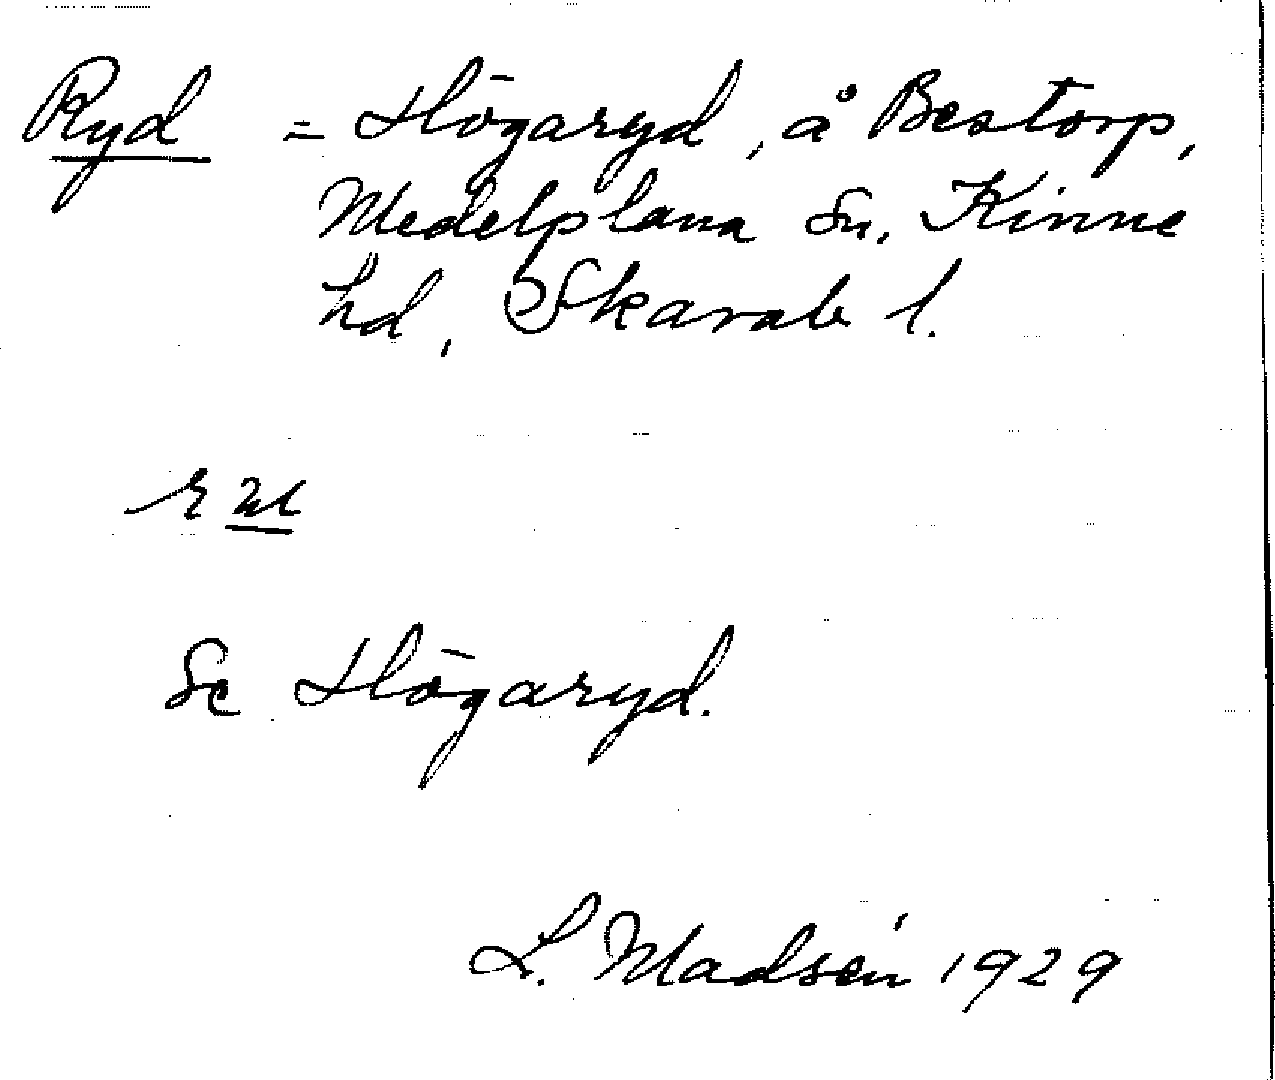 Ryd = Högaryd, å Bestorp,
Medelplana sn, Kinne
hd, Skarab l.
Se Högaryd.
L. Madsén 1929